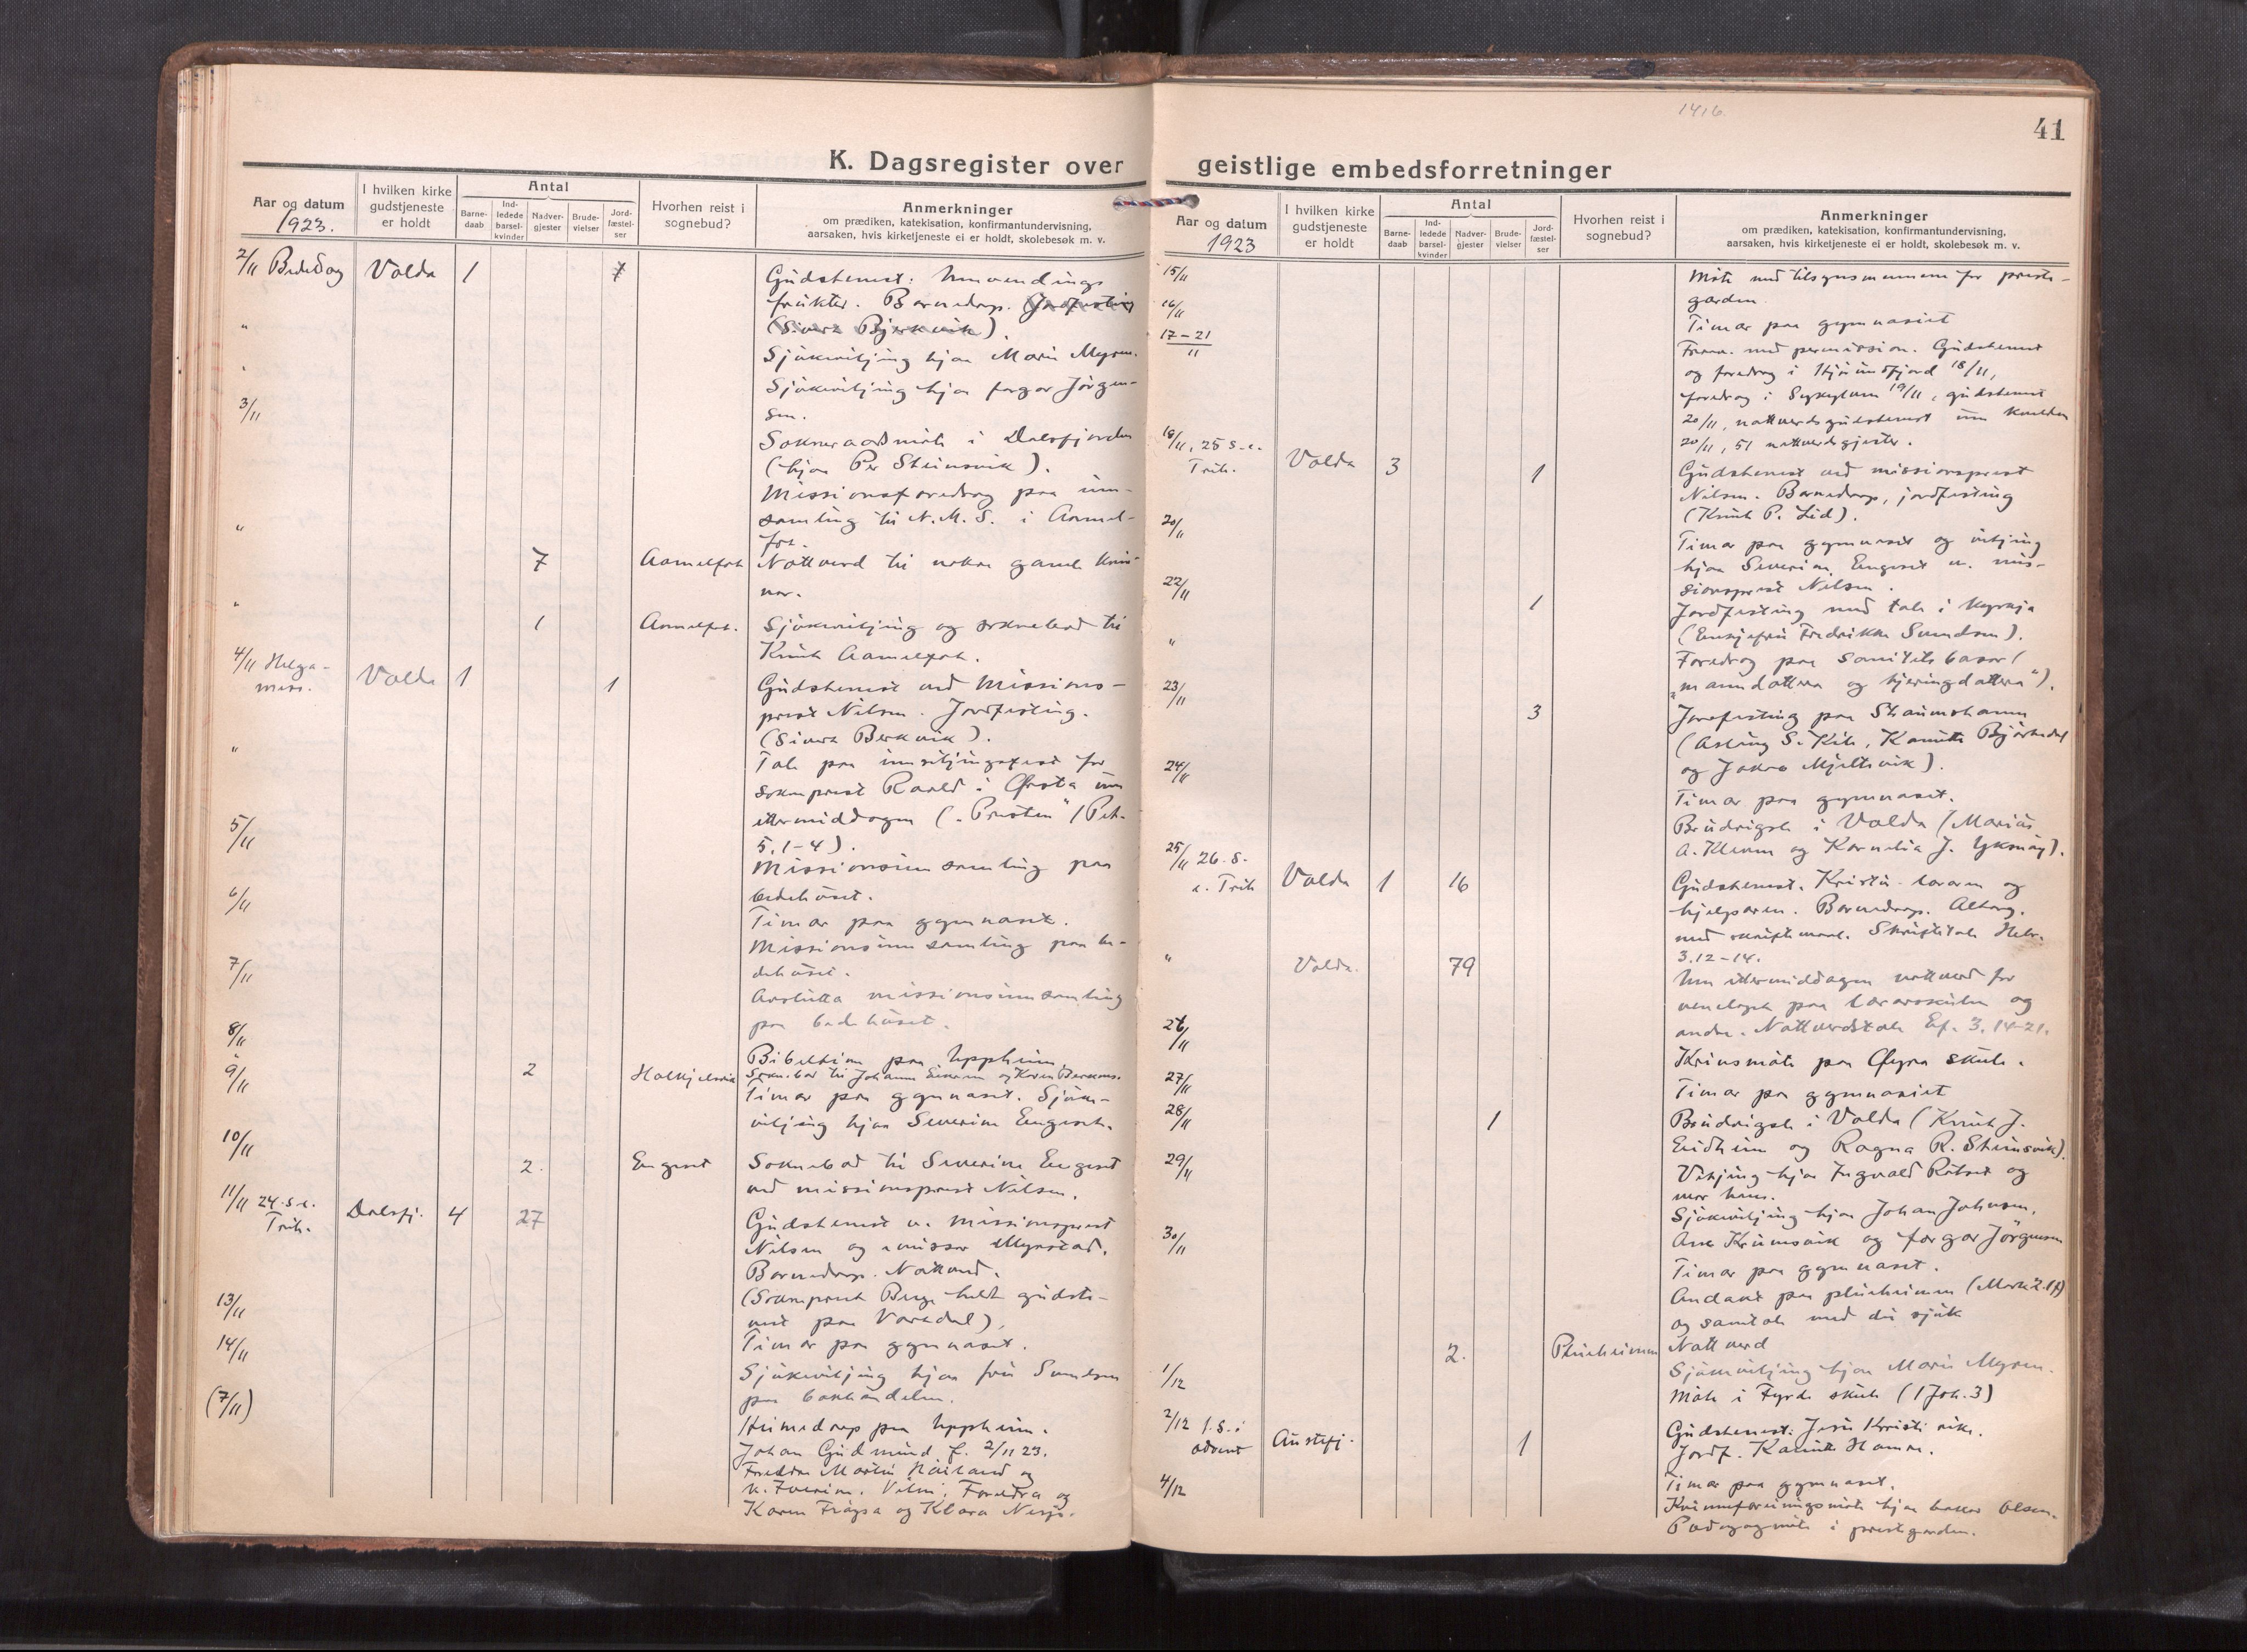 1416.
41
K. Dagsregister over geistlige embedsforretninger
Aar og datum
1923.
I hvilken kirke gudstjeneste er holdt
Antal
Barnedaab
Indledede barselkvinder
Nadvergjester
Brudevielser
Jordfæstelser
Hvorhen reist i sognebud?
Anmerkninger
om prædiken, katekisation, konfirmantundervisning,
aarsaken, hvis kirketjeneste ei er holdt, skolebesøk m. v.
2/11 Bededag Volda 1 Gudstenest: Umvendings
frukter. Barnedaap. Jordfesting
(Sivert Bjerkvik).
" Sjukevitjing hjaa Marie Myren.
" Sjukevitjing hjaa fargar Jörgen-
sen.
3/11 Sokneraadsmöte i Dalsfjorden
(hjaa Per Steinsvik).
Missionsforedrag paa inn-
samling til N. M. S. i Aamel-
fot.
" 7 Aamelfot Nattverd til nokre gamle kvin-
nor.
" 1 Aamelfot. Sjukevitjing og soknebod til
Knut Aamelfot.
4/11 Helga-
mess. Volda 1 1 Gudstenest ved Missions-
prest Nilsen. Jordfesting.
(Sivert Berkvik).
" Tale paa innvitjingsfest for
sokneprest Raald i Ørsta um
ettermiddagen („Presten" 1 Pet.
5, 1-4).
5/11 Missionsinnsamling paa
bedehuset.
6/11 Timar paa gymnaset.
Missionsinnsamling paa be-
dehuset.
7/11 Avslutta missionsinnsamling
paa bedehuset.
8/11 Bibeltime paa Uppheim.
" 2 Soknebod til Johanne
9/11 Timar paa gymnaset. Sjuke-
vitjing hjaa Severine Engeset.
10/11 2. Engeset Soknebod til Severine Engeset
ved missionsprest Nilsen.
11/11 24. s. e.
Trih. Dalsfj. 4 27 Gudstenest v. missionsprest
Nilsen og emissær Myrstad.
Barnedaap. Nattverd.
(Sokneprest Berge heldt gudste-
nest paa Vartdal).
13/11 Timar paa gymnaset.
14/11 Sjukevitjing hjaa fru Sundsen
paa bokhandelen.
(7/11) Heimedaap paa Uppheim.
Johan Gudmund f. 2/11 23.
Foreldre Martin
Karen og Klara
Aar og datum
1923
I hvilken kirke gudstjeneste er holdt
Antal
Barnedaab
Indledede barselkvinder
Nadvergjester
Brudevielser
Jordfæstelser
Hvorhen reist i sognebud?
Anmerkninger
om prædiken, katekisation, konfirmantundervisning,
aarsaken, hvis kirketjeneste ei er holdt, skolebesøk m. v.
15/11 Möte med tilsynsmennene for preste-
garden.
16/11 Timar paa gymnasiet
17-21/11 med permission. Gudstenest
og foredrag i Hjörundfjord 18/11,
foredrag i Sykylven 19/11, gudstenest
20/11, nattverdsgudstenest um kvelden
20/11, 51 nattverdsgjester.
18/11, 25 s. e.
Trih. Volda 3 1 Gudstenest ved missionsprest
Nilsen. Barnedaap, jordfesting
(Knut P. Lid).
20/11 Timar paa gymnaset og vitjing
hjaa Severine Engeset v. mis-
sionsprest Nilsen.
22/11 1 Jordfesting med tale i kyrkja
(Enkjefru Fredrikke Sundsen).
" Foredrag paa sanitetsbasar (
„manndottera og kjeringdottera").
23/11 3 Jordfesting paa Straumshamn
(Aslaug S. Kile, Kanutte Björkedal
og Jakob Mjeltevik).
24/11 Timar paa gymnaset.
Brudvigsle i Volda (Marius
A. Kleven og Kornelia J. ).
25/11 26. s.
e. Trih Volda 1 16 Gudstenest. Kristus læraren og
hjelparen. Barnedaap. Altarg.
med skriftemaal. Skriftetale Hebr.
3.12-14.
" Volda. 79 Um ettermiddagen nattverd for
venelaget paa lærarskulen og
andre. Nattverdstale Ef. 3. 14-21.
26/11 Krinsmöte paa Øyra skule.
27/11 Timar paa gymnasiet
28/11 1 Brudvigsle i Volda (Knut J.
Eidheim og Ragna R. Steinsvik).
29/11 Vitjing hjaa Ingvald Rotset og
mor hans.
Sjukevitjing hjaa Johan Johnsen,
Ane Krumsvik og fargar Jörgensen
30/11 Timar paa gymnaset.
Andakt paa pleieheimen (Mark 2.17)
og samtale med dei sjuke
2. Pleieheimen Nattverd
1/12 Sjukevitjing hjaa Marie Myren.
Möte i Fyrde skule (1 Joh. 3)
2/12 1. s. i
advent Austefj. 1 Gudstenest: Jesu Kristi rike.
Jordf. Kanutte Hamre.
4/12 Timar paa gymnaset.
Kvinneforeiningsmöte hjaa bakar Olsen.
Pedagogmöte i prestgarden.